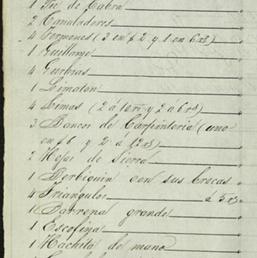 1 Pie de Cabra
2 Tanaladores
4 Formones (3 en £2 y 1 en 6.03)
1 Guillame
4 Gurbias
1 Limaton
4 Limas (2 á 10 rs y 2 a 6 03)
3 Bancos de Carpinteria (uno
en £6 y 2 a 12 03)
2 Hojas de Sierra
1 Berbiquin con sus brocas
4 Triangulos á 5.03
1 Barrena grande
1 Escofina
1 Hachita de mano